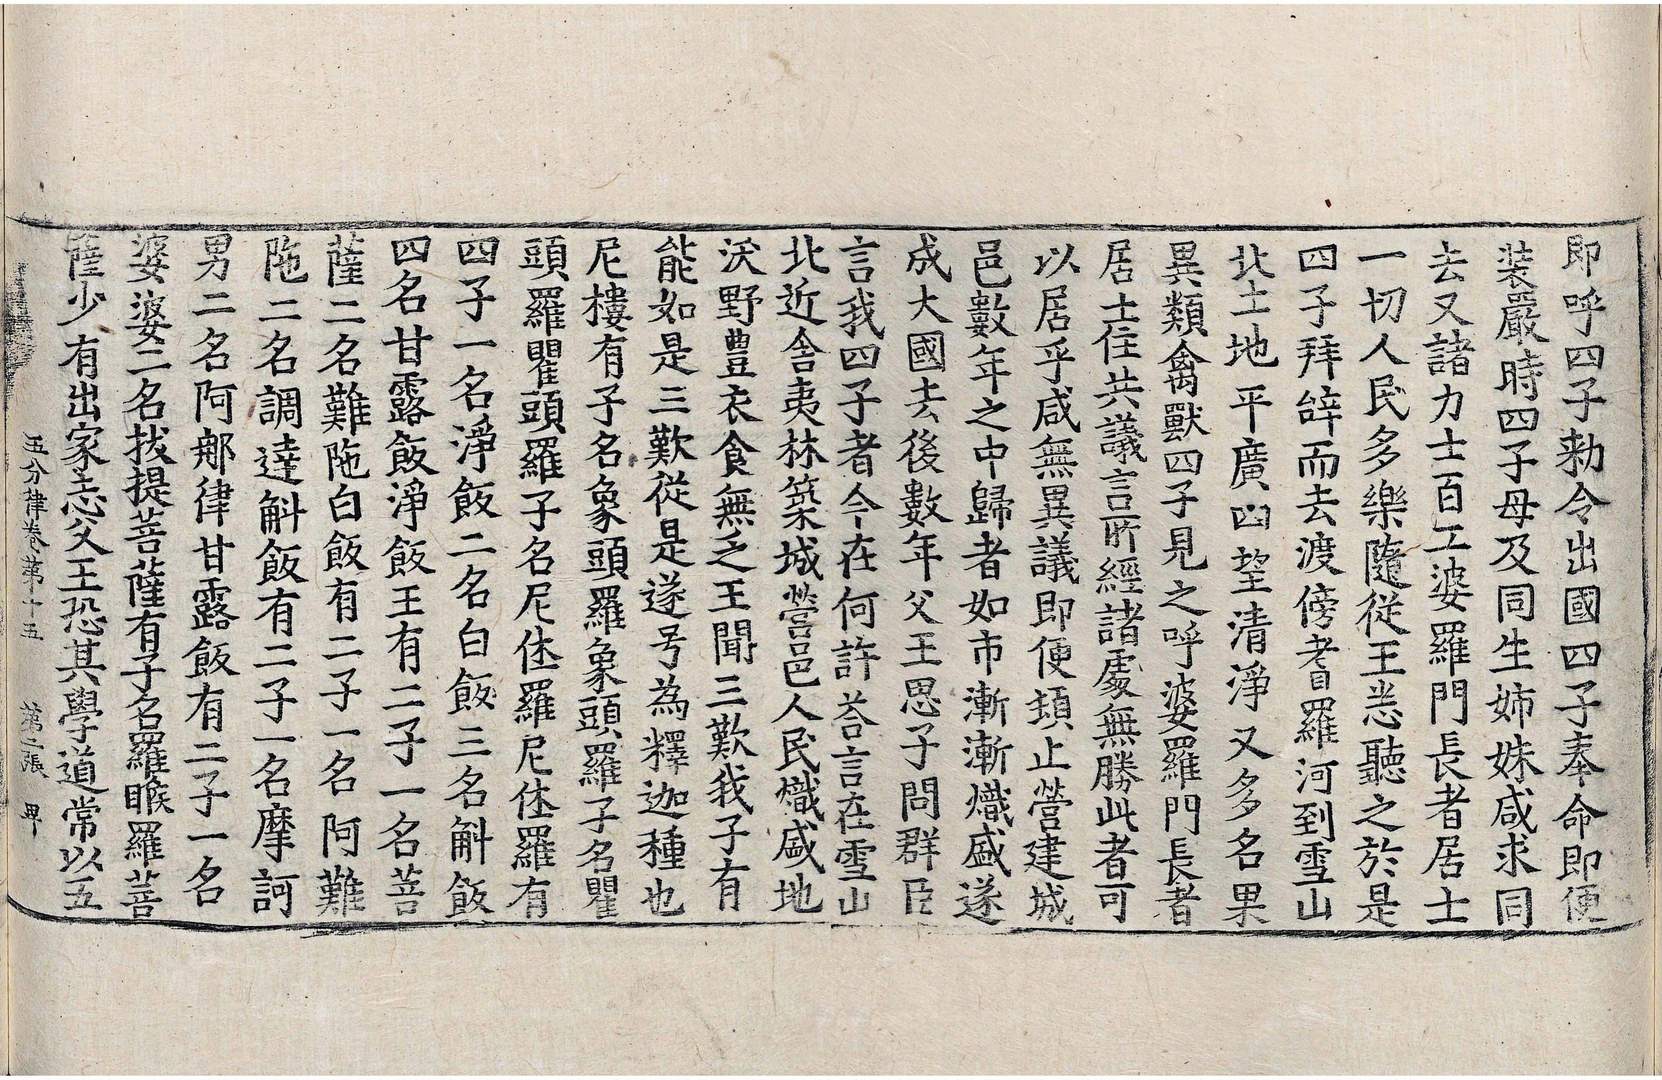 即呼四子勑令出國四子奉命即便
裝嚴時四子母及同生姉妹咸求同
去又諸力士百工婆羅門長者居士
一切人民多樂隨從王悉聽之於是
四子拜辝而去渡傍耆羅河到雪山
北土地平廣四望清淨又多名果
異類禽獸四子見之呼婆羅門長者
居士住共議言所經諸處無勝此者可
以居乎咸無異議即便頓止營建城
邑數年之中歸者如市漸漸熾盛遂
成大國去後數年父王思子問群臣
言我四子者今在何許荅言在雪山
北近舍夷林築城營邑人民熾盛地
沃野豊衣食無乏王聞三歎我子有
能如是三歎從是遂号為釋迦種也
尼樓有子名象頭羅象頭羅子名瞿
頭羅瞿頭羅子名尼休羅尼休羅有
四子一名淨飯二名白飯三名斛飯
四名甘露飯淨飯王有二子一名菩
薩二名難陁白飯有二子一名阿難
陁二名調達斛飯有二子一名摩訶
男二名阿那律甘露飯有二子一名
婆婆二名拔提菩薩有子名羅睺羅菩
薩少有出家志父王恐其學道常以五
五分律卷第十五 第二張 卑